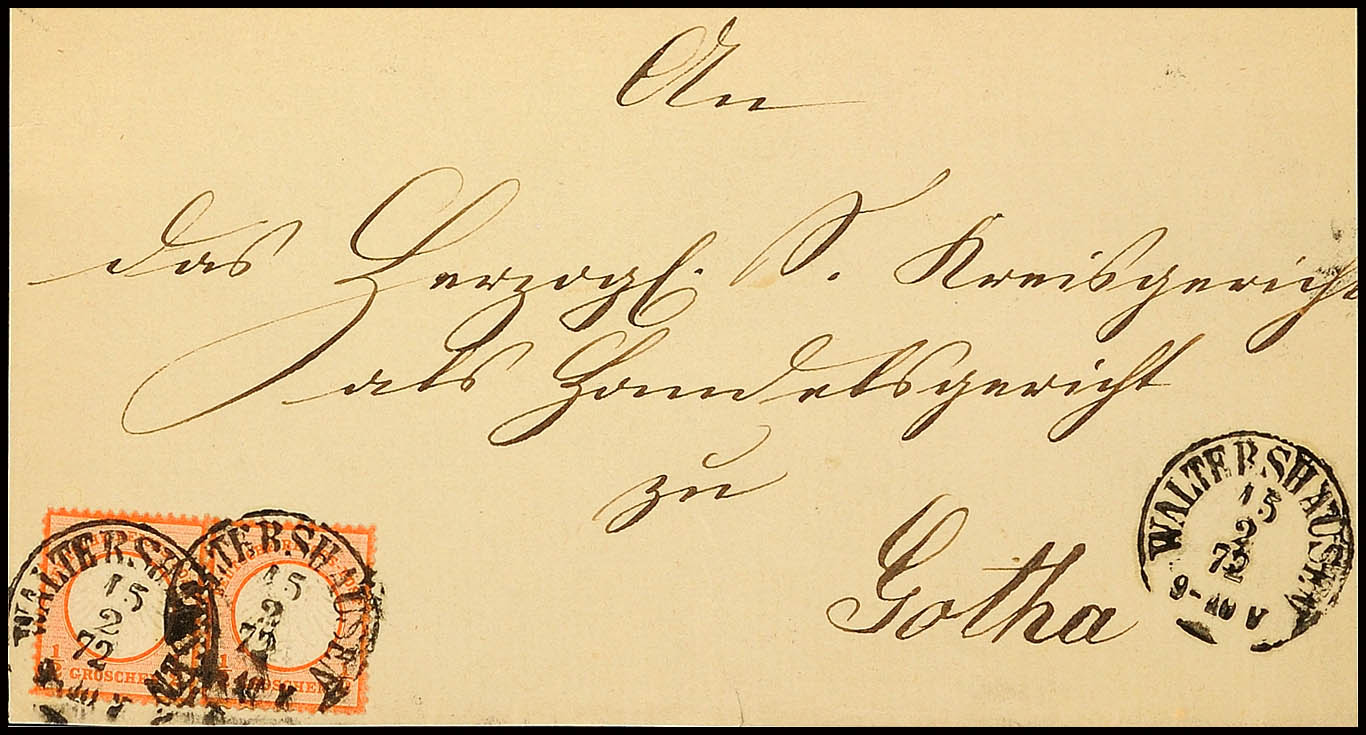 An
das Herzogl. S. Kreisgericht
als Handelsgericht
zu
Gotha
WALTERSHAUSEN
15
2
72
9-10 V
WALTERSHAUSEN
15
2
72
9-10 V
WALTERSHAUSEN
15
2
72
1/2 GROSCHEN
1/2 GROSCHEN